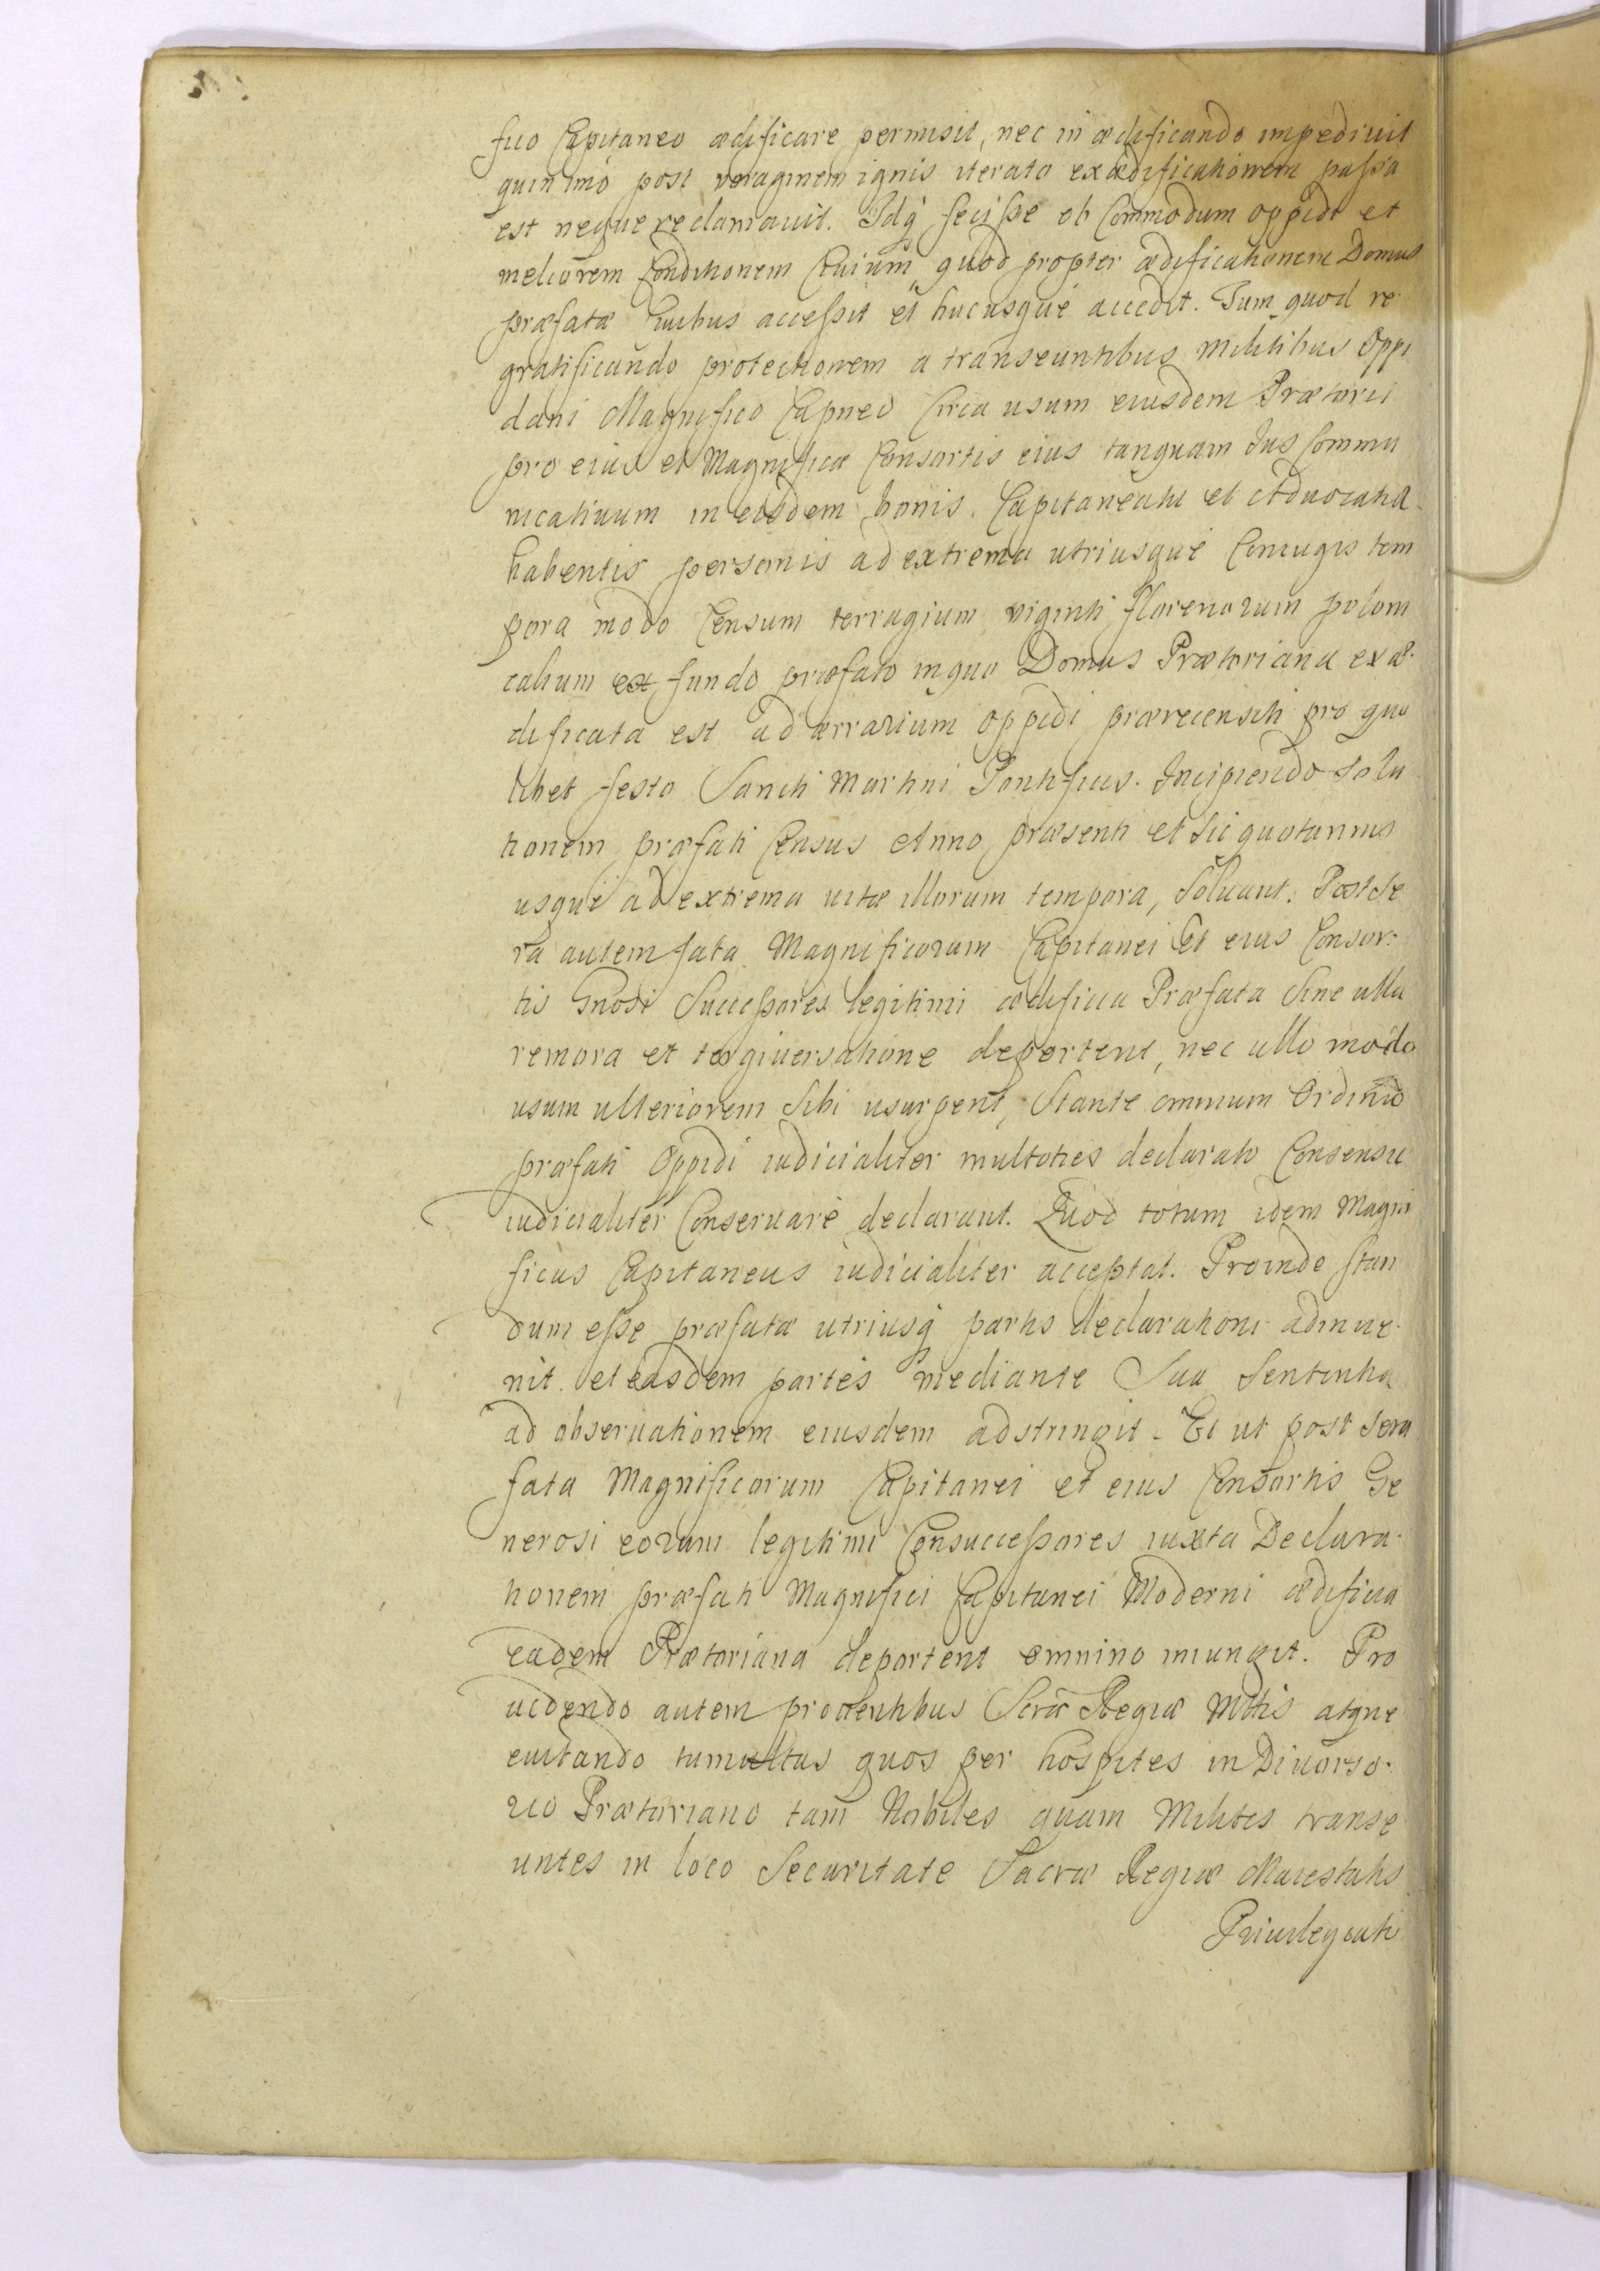 suo Capitaneo ædificare permisit, nec in ædificando impediuit
quin imò post voraginem ignis iterato exædificationem passa
est neque reclamauit. Idq fecisse ob Commodum oppidi et
meliorem Conditionem Ciuium, quod propter ædificationem Domus
præfatæ Ciuibus accessit et hucusque accedit. Tum quod re
gratificando protectionem a transeuntibus Militibus Oppi
dani Magnifico Capneo Circa usum eiusdem Prætorii
pro eius et Magnificæ Consortis eius tanquam Ius Commu
nicatiuum in eisdem bonis. Capitaneatu et Aduocatia
habentis personis ad extrema utriusque Coniugis tem
pora modo Censum terragium viginti florenorum poloni
calium ex fundo præfato in quo Domus Prætoriana exæ
dificata est ad ærrarium oppidi prærecensiti pro quo
libet festo Sancti Martini Pontificis. Incipiendo Solu
tionem præfati Census Anno præsenti et Sic quotannis
usque ad extrema uitæ illorum tempora, Soluant. Post Se
ra autem fata Magnificorum Capitanei Et eius Consor
tis Gnosi Successores legitimi ædificia Præfata Sine ulla
remora et tergiuersatione deportent, nec ullo modo
usum ulteriorem Sibi usurpent, Stante omnium Ordinū
præfati Oppidi iudicialiter multoties declarato Consensu
iudicialiter Conseruare declarant. Quod totum idem Magni
ficus Capitaneus iudicialiter acceptat. Proinde Stan
dum esse præfatæ utriusq partis declarationi adinue
nit et easdem partes mediante Sua Sententia
ad obseruationem eiusdem adstringit. Et ut post Sera
fata Magnificorum Capitanei et eius Consortis Ge
nerosi eorum legitimi Consuccessores iuxta Declara
tionem præfati Magnifici Capitanei Moderni ædificia
eadem Prætoriana deportent omnino iniungit. Pro
uidendo autem prouentibus Scræ Regiæ Mttis atque
euitando tumultus quos per hospites in Diuorso
rio Prætoriano tam Nobiles quam Milites transe
untes in loco Securitate Sacræ Regiæ Maiestatis
Priuilegiati